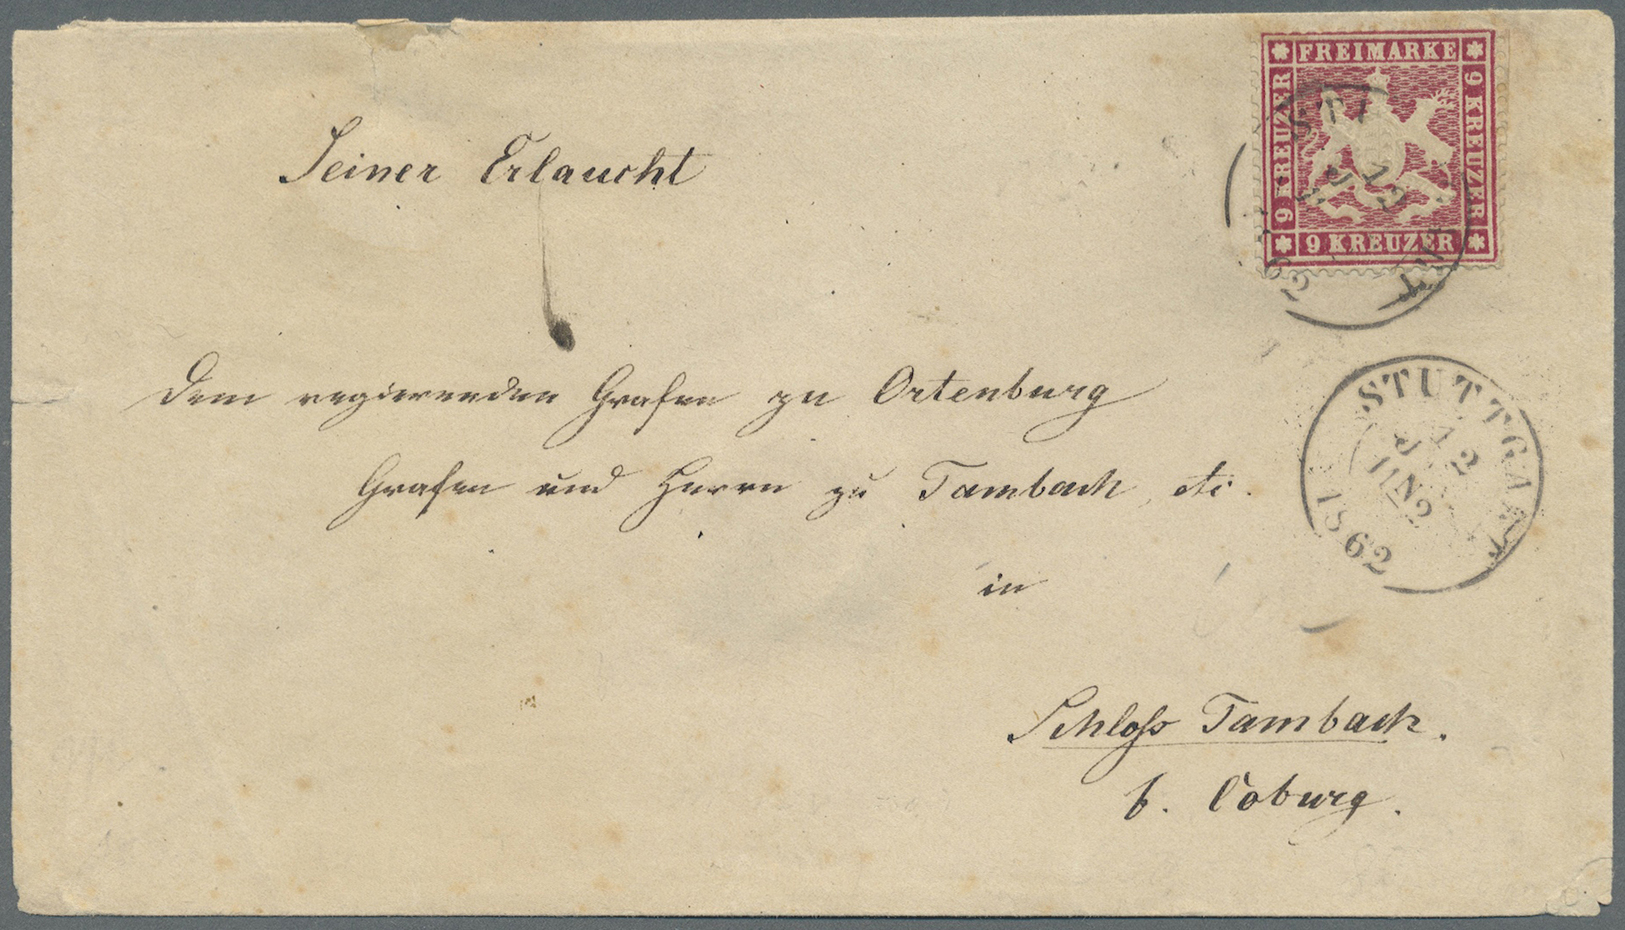 FREIMARKE
9 KREUZER
9 KREUZER
9 KREUZER
Seiner Erlaucht
STUTTGART
12
JUN 2
1862
Dem regierenden Grafen zu Ortenburg
Grafen und Herrn zu Tambach, etc.
in
Schloß Tambach.
b. Coburg.